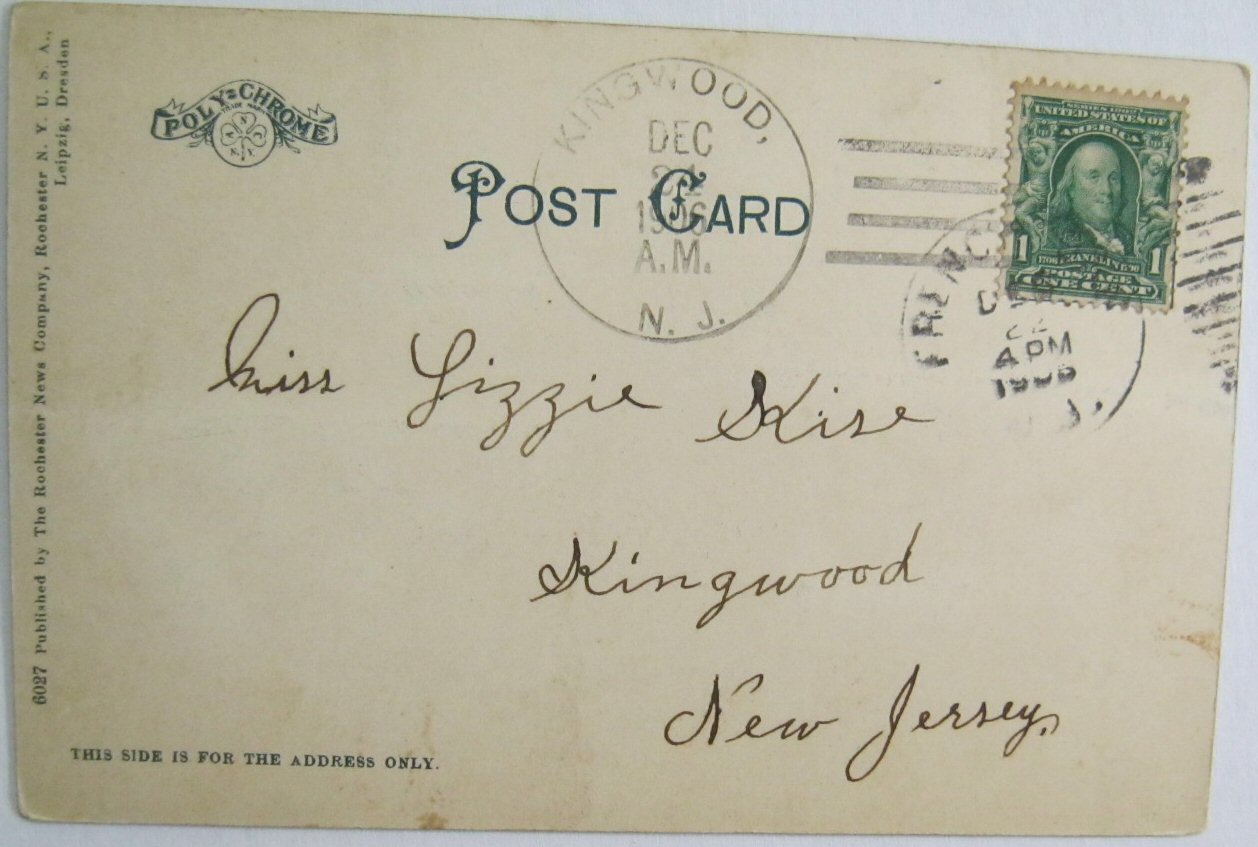 6027 Published by The Rochester News Company, Rochester N. Y. U. S. A.,
Leipzig, Dresden
POLY=CHROME
TRADE MARK
A N C N.Y.
POST CARD
KINGWOOD,
DEC
1906
A.M.
N. J.
SERIES 1902
UNITED STATES OF
AMERICA
1 1
1706 FRANKLIN 90
POSTAGE
ONE CENT
FRENC
22
4 PM
1906
J.
Miss Lizzie Kise
Kingwood
New Jersey.
THIS SIDE IS FOR THE ADDRESS ONLY.